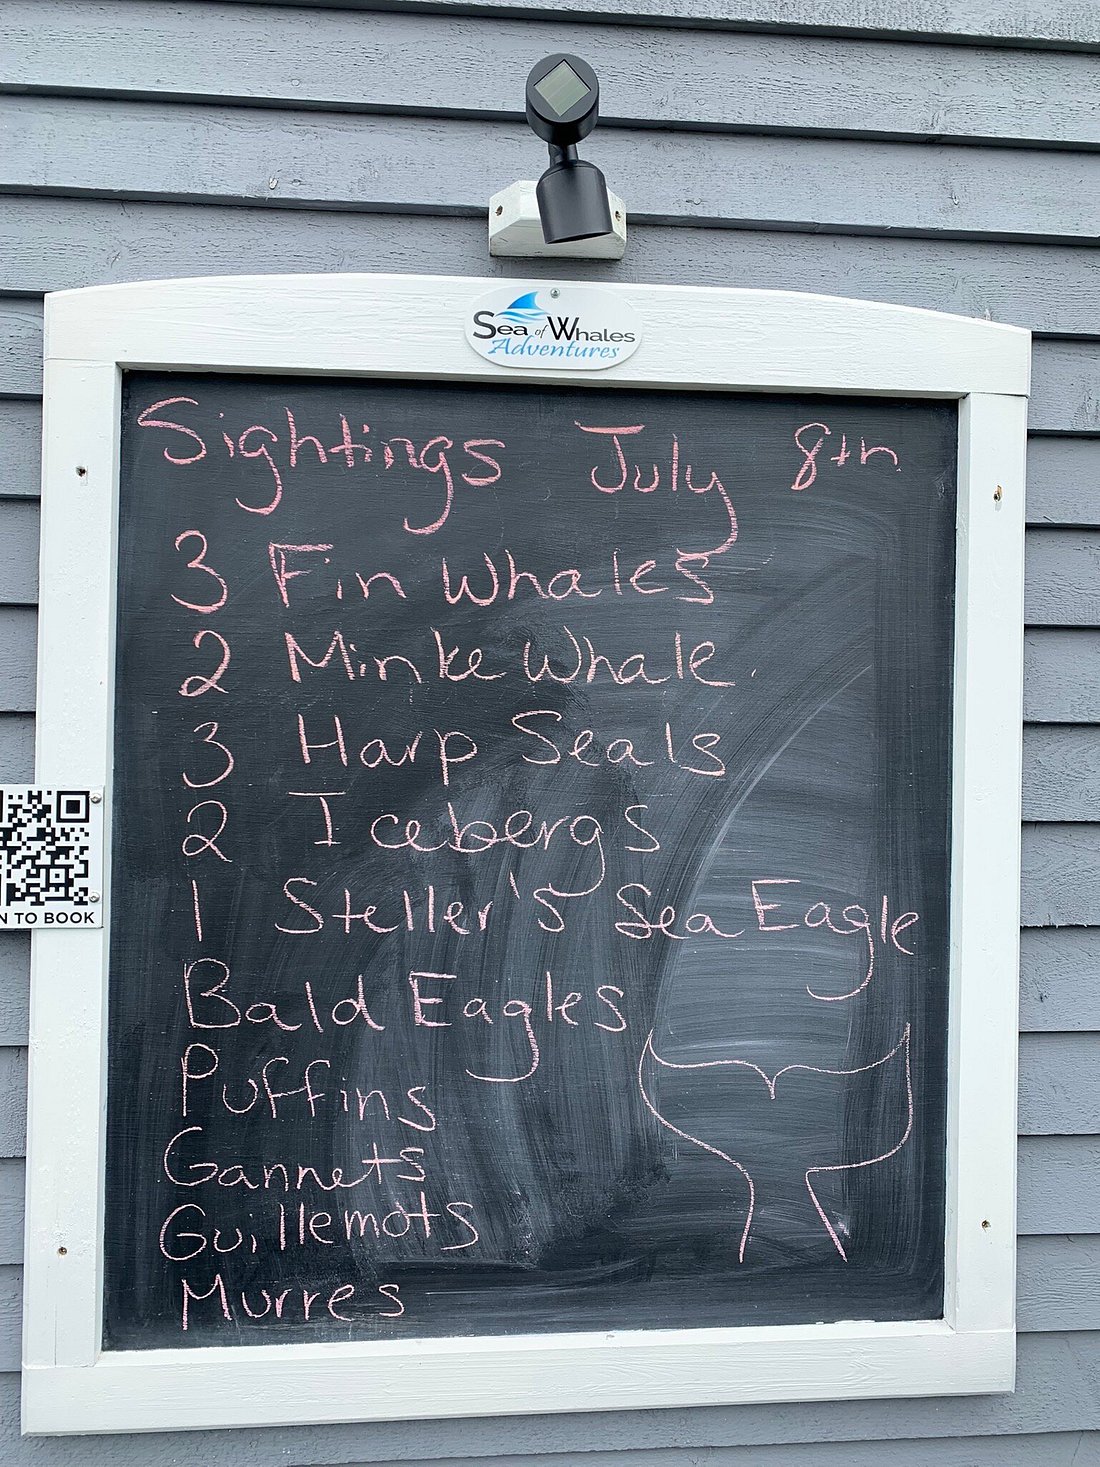 Sea of Whales
Adventures
Sightings July 8th
3 Fin Whales
2 Minke Whale.
3 Harp Seals
2 Icebergs
1 Steller's Sea Eagle
Bald Eagles
Puffins
Gannets
Guillemots
Murres
N TO BOOK